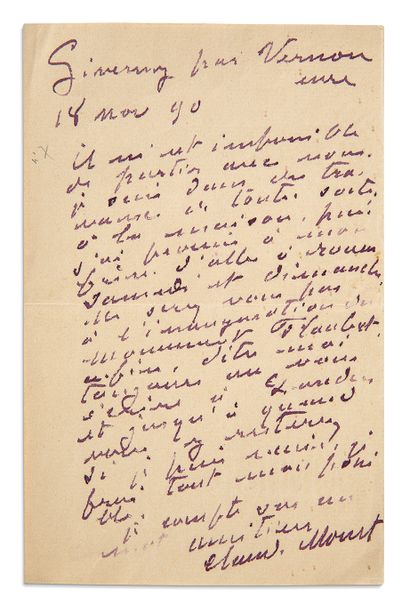 Giverny par Vernon
eure
18 nov 90
Il m'est impossible
de partir avec vous.
je suis dans des tra
vaux de toute sorte
à la maison, puis
j'ai promis à mon
frère d'aller à Rouen
samedi et dimanche
ne serez vous pas
à l'inauguration du
monument Flaubert.
enfin, dites moi
toujours où vous
écrire à Londres
et jusqu'à quand
vous y resterez
si je puis venir, je
ferai tout mon possi
ble.
je compte sur un
mot amitiés
Claude Monet